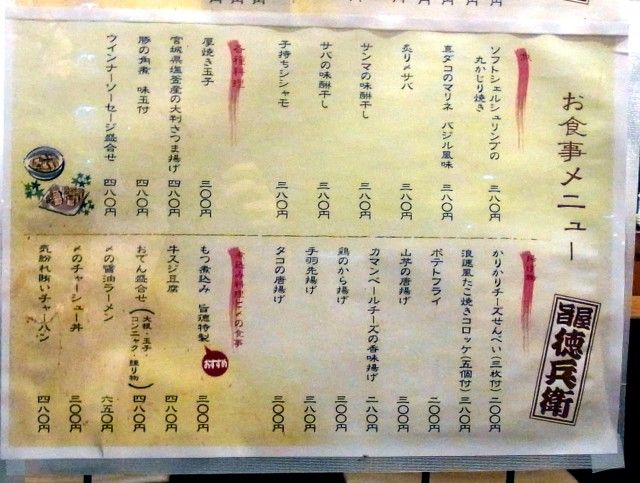 お食事メニュー
旨屋 徳兵衛
ソフトシェルシュリンプの
丸かじり焼き 三八〇円
真ダコのマリネ バジル風味 四八〇円
炙り〆サバ 三八〇円
サンマの味醂干し 三八〇円
サバの味醂干し 三八〇円
子持ちシシャモ 三八〇円
各種料理
厚焼き玉子 三〇〇円
宮城県塩釜産の大判さつま揚げ 四八〇円
豚の角煮 味玉付 四八〇円
ウインナーソーセージ盛合せ 四八〇円
かりかりチーズせんべい(三枚付) 二〇〇円
浪速風たこ焼きコロッケ(五個付) 三八〇円
ポテトフライ 二〇〇円
山芋の唐揚げ 三〇〇円
カマンベールチーズの香味揚げ 二八〇円
鶏のから揚げ 三〇〇円
手羽先揚げ 三〇〇円
タコの唐揚げ 三〇〇円
煮込み料理と〆の食事
もつ煮込み 旨徳特製 おすすめ 三〇〇円
牛スジ豆腐 四八〇円
おでん盛合せ(大根・玉子・コンニャク・練り物) 四八〇円
〆の醤油ラーメン 六五〇円
〆のチャーシュー丼 三〇〇円
気紛れ賄いチャーハン 四八〇円